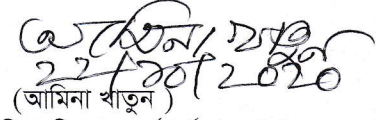 আমিনা খাতুন
২২/১০/২০২০
(আমিনা খাতুন)